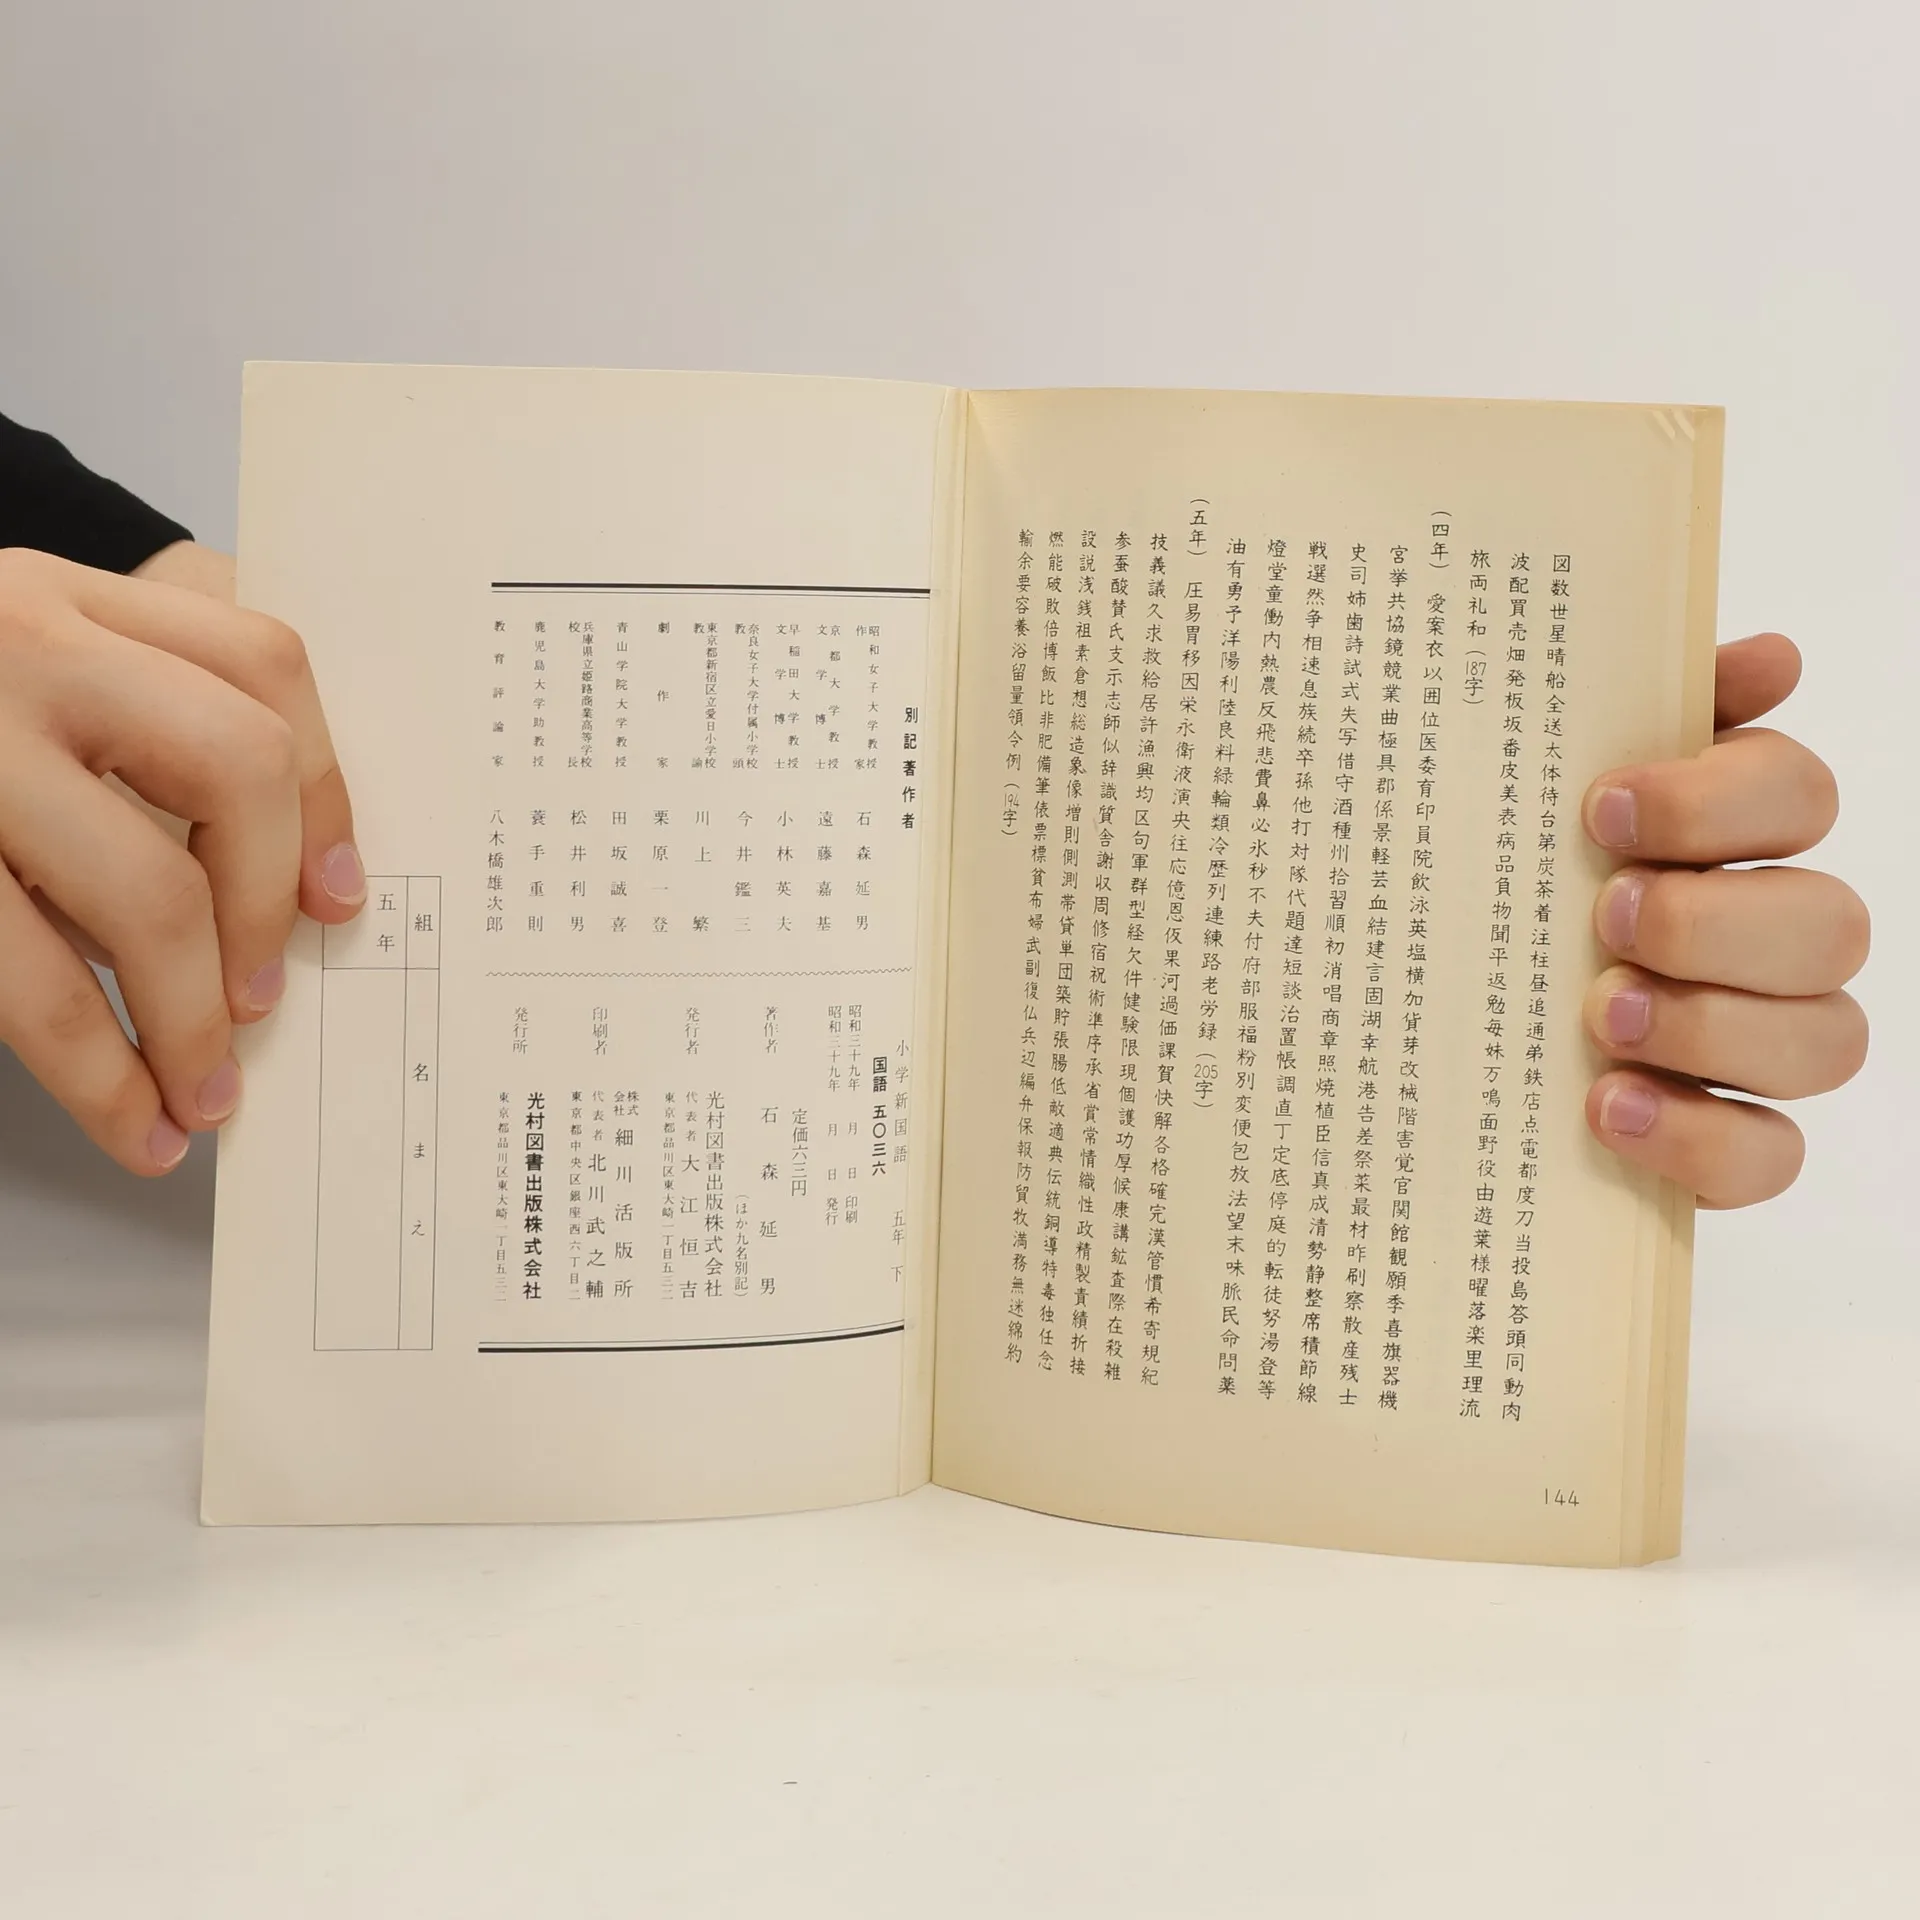 図数世星晴船全送太体待台第炭茶着注柱昼追通弟鉄店点電都度刀当投島答頭同動肉
波配買売畑発板坂番皮美表病品負物聞平返勉毎妹万鳴面野役由遊葉様曜落楽里理流
旅両礼和(187字)
(四年) 愛案衣以囲位医委育印員院飲泳英塩横加貨芽改械階害覚官関館観願季喜旗器機
宮挙共協鏡競業曲極具郡係景軽芸血結建言固湖幸航港告差祭菜最材昨刷察散産残士
史司姉歯詩試式失写借守酒種州拾習順初消唱商章照焼植臣信真成清勢静整席積節線
戦選然争相速息族続卒孫他打対隊代題達短談治置帳調直丁定底停庭的転徒努湯登等
燈堂童働内熱農反飛悲費鼻必氷秒不夫付府部服福粉別変便包放法望末味脈民命問薬
油有勇予洋陽利陸良料緑輪類冷歴列連練路老労録(205字)
(五年) 圧易胃移因栄永衛液演央往応億恩仮果河過価課賀快解各格確完漢管慣希寄規紀
技義議久求救給居許漁興均区句軍群型経欠件健験限現個護功厚候康講鉱査際在殺雑
参蚕酸賛氏支示志師似辞識質舎謝収周修宿祝術準序承省賞常情織性政精製責績折接
設説浅銭祖素倉想総造象像増則側測帯貸単団築貯張腸低敵適典伝統銅導特毒独任念
燃能破敗倍博飯比非肥備筆俵票標貧布婦武副復仏兵辺編弁保報防貿牧満務無迷綿約
輸余要容養浴留量領令例(194字)
144
別記著作者
昭和女子大学教授
作家 石森延男
京都大学教授
文学博士 遠藤嘉基
早稲田大学教授
文学博士 小林英夫
奈良女子大学付属小学校
教頭 今井鑑三
東京都新宿区立愛日小学校
教諭 川上繁
劇作家 栗原一登
青山学院大学教授 田坂誠喜
兵庫県立姫路商業高等学校
校長 松井利男
鹿児島大学助教授 蓑手重則
教育評論家 八木橋雄次郎
小学新国語 五年 下
国語 五〇三六
昭和三十九年 月 日 印刷
昭和三十九年 月 日 発行
定価六三円
著作者 石森延男
(ほか九名別記)
発行者 光村図書出版株式会社
代表者 大江恒吉
東京都品川区東大崎一丁目五三二
印刷者 株式会社 細川活版所
代表者 北川武之輔
東京都中央区銀座西六丁目二
発行所 光村図書出版株式会社
東京都品川区東大崎一丁目五三二
組 名まえ
五年